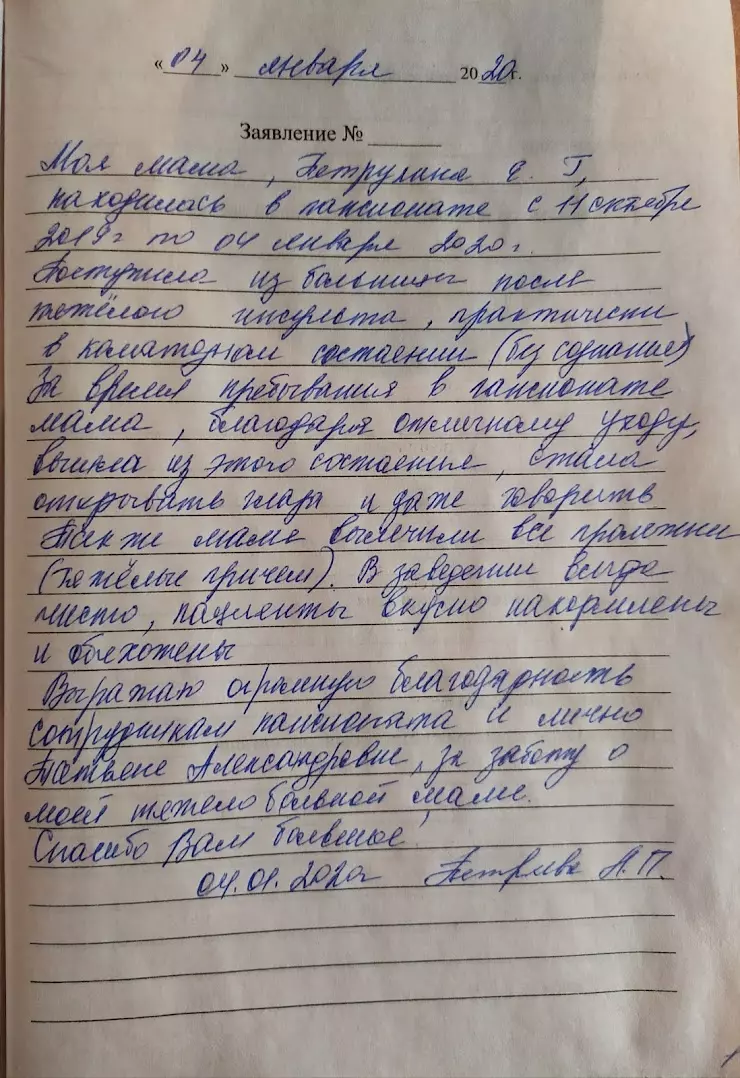 « 04 » января 2020г.
Заявление №
Моя мама, Петрулина Е. Г,
находилась в пансионате с 11 октября
2019г по 04 января 2020г.
Поступила из больницы после
тяжёлого инсульта, практически
в коматозном состоянии (без сознания)
За время пребывания в пансионате
мама, благодаря отличному уходу,
вышла из этого состояния, стала
открывать глаза и даже говорить
Также маме вылечили все пролежни
(тяжёлые причем). В заведении всегда
чисто, пациенты вкусно накормлены
и обихожены
Выражаю огромную благодарность
сотрудникам пансионата и лично
Татьяне Александровне, за заботу о
моей тяжело больной маме.
Спасибо Вам большое!
04.01.2020г А.П.